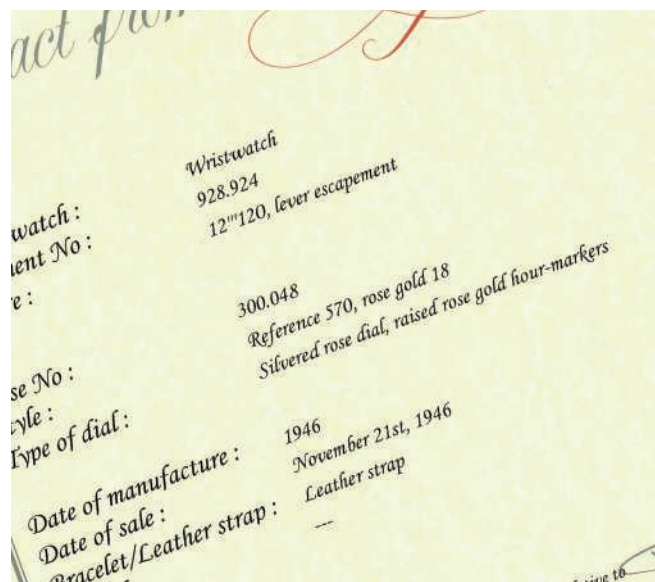 act from
watch : Wristwatch
ent No : 928.924
e : 12'''120, lever escapement
se No : 300.048
yle : Reference 570, rose gold 18
Type of dial : Silvered rose dial, raised rose gold hour-markers
Date of manufacture : 1946
Date of sale : November 21st, 1946
Bracelet/Leather strap : Leather strap
---
to